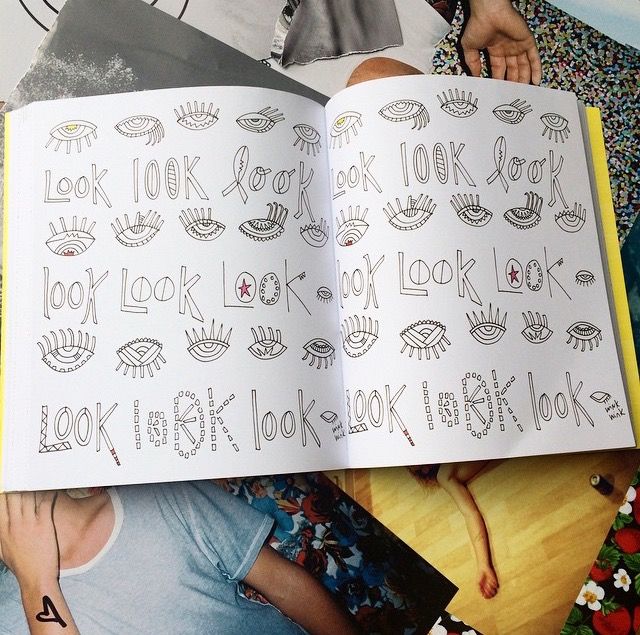 Look look look
look Look Look
Look look look
wink
wink
Look look look
look Look Look
Look look look
wink
wink